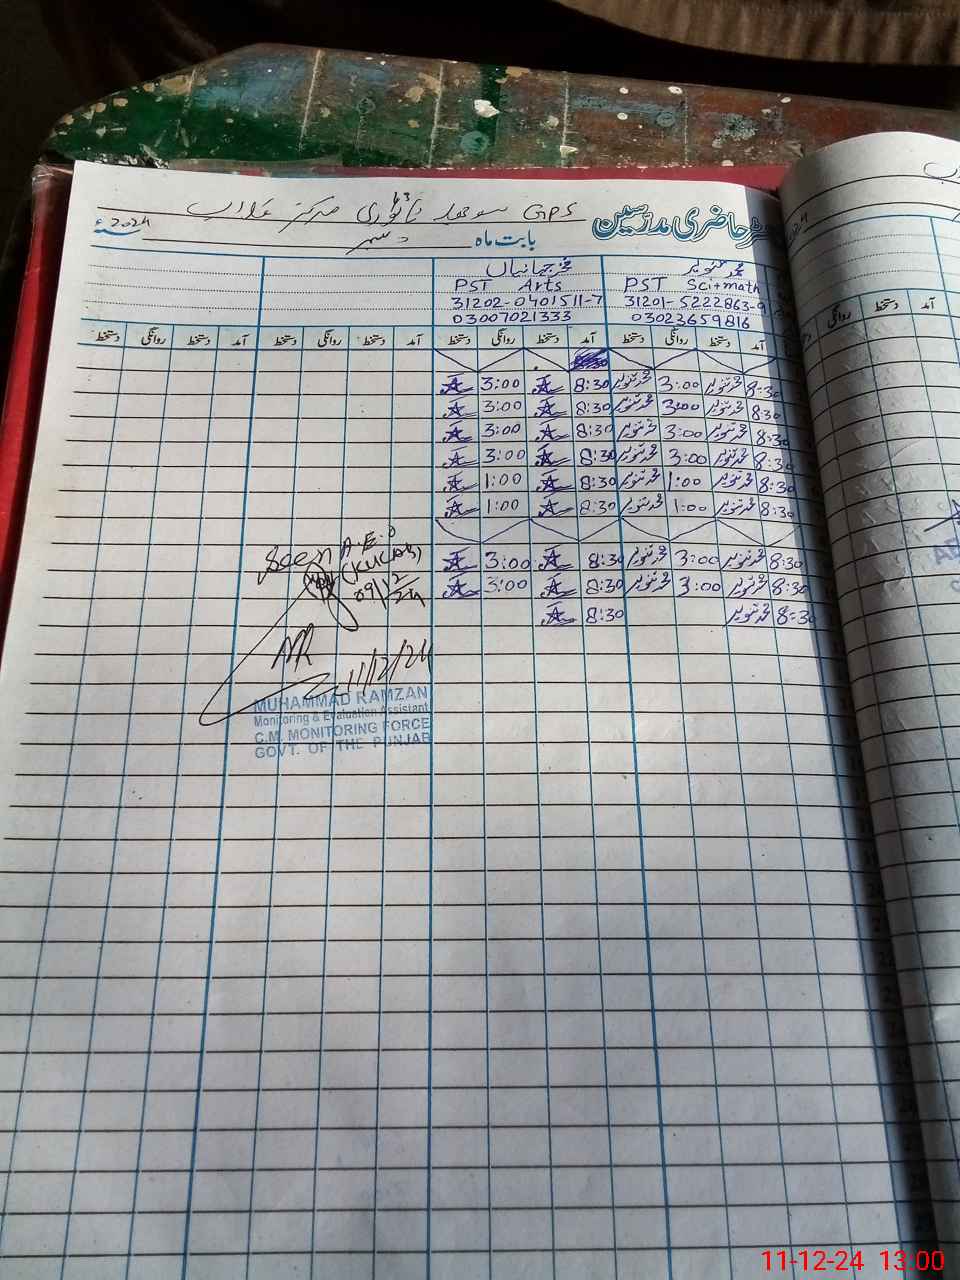 رجسٹر حاضری مدرسین GPS
بابت ماہ دسمبر 2024ء
محمد تنویر
PST Sci+math
31201-5222863-9
03023659816
PST Arts
31202-0401511-7
03007021333
آمد دستخط روانگی دستخط آمد دستخط روانگی دستخط آمد دستخط روانگی دستخط آمد دستخط روانگی دستخط
8:30 محمد تنویر 3:00 محمد تنویر 8:30 3:00
8:30 محمد تنویر 3:00 محمد تنویر 8:30 3:00
8:30 محمد تنویر 3:00 محمد تنویر 8:30 3:00
8:30 محمد تنویر 3:00 محمد تنویر 8:30 3:00
8:30 محمد تنویر 1:00 محمد تنویر 8:30 1:00
8:30 محمد تنویر 1:00 محمد تنویر 8:30 1:00
8:30 محمد تنویر 3:00 محمد تنویر 8:30 3:00
8:30 محمد تنویر 3:00 محمد تنویر 8:30 3:00
8:30 محمد تنویر 8:30
Seen
A.E.O
09/12/24
11/12/24
MUHAMMAD RAMZAN
Monitoring & Evaluation Assistant
C.M. MONITORING FORCE
GOVT. OF THE PUNJAB
آمد دستخط روانگی
11-12-24 13.00